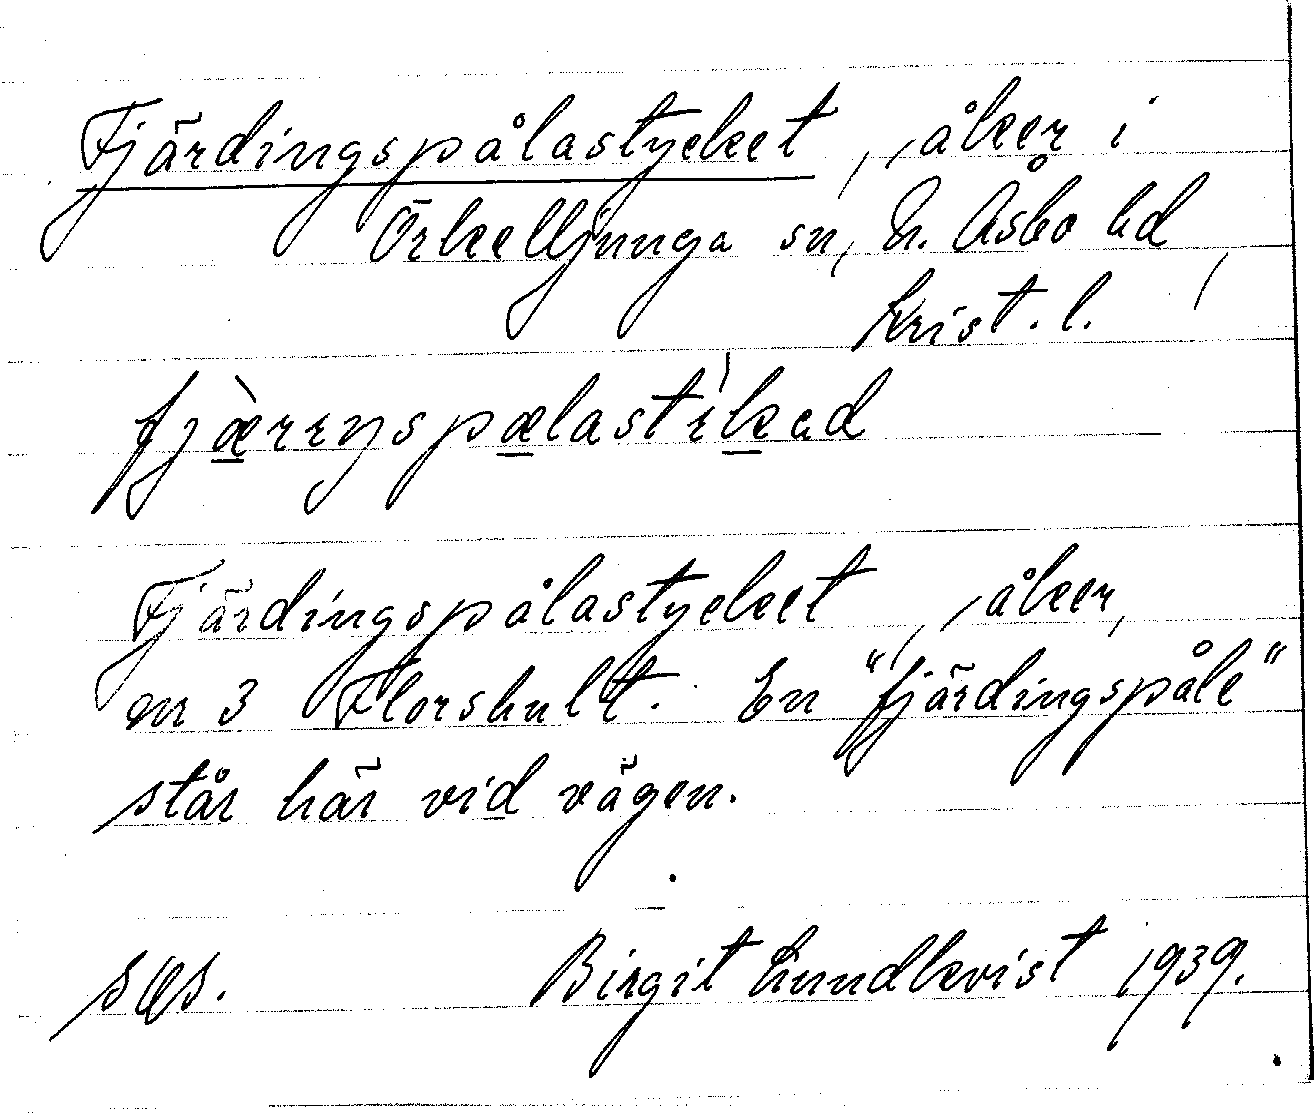 Fjärdingspålastycket, åker i
Örkelljunga sn, N. Åsbo hd,
Krist. l.
Fjärdingspålastycket, åker,
nr 3 Florshult. En "fjärdingspåle"
står här vid vägen.
Birgit Lundkvist 1939.